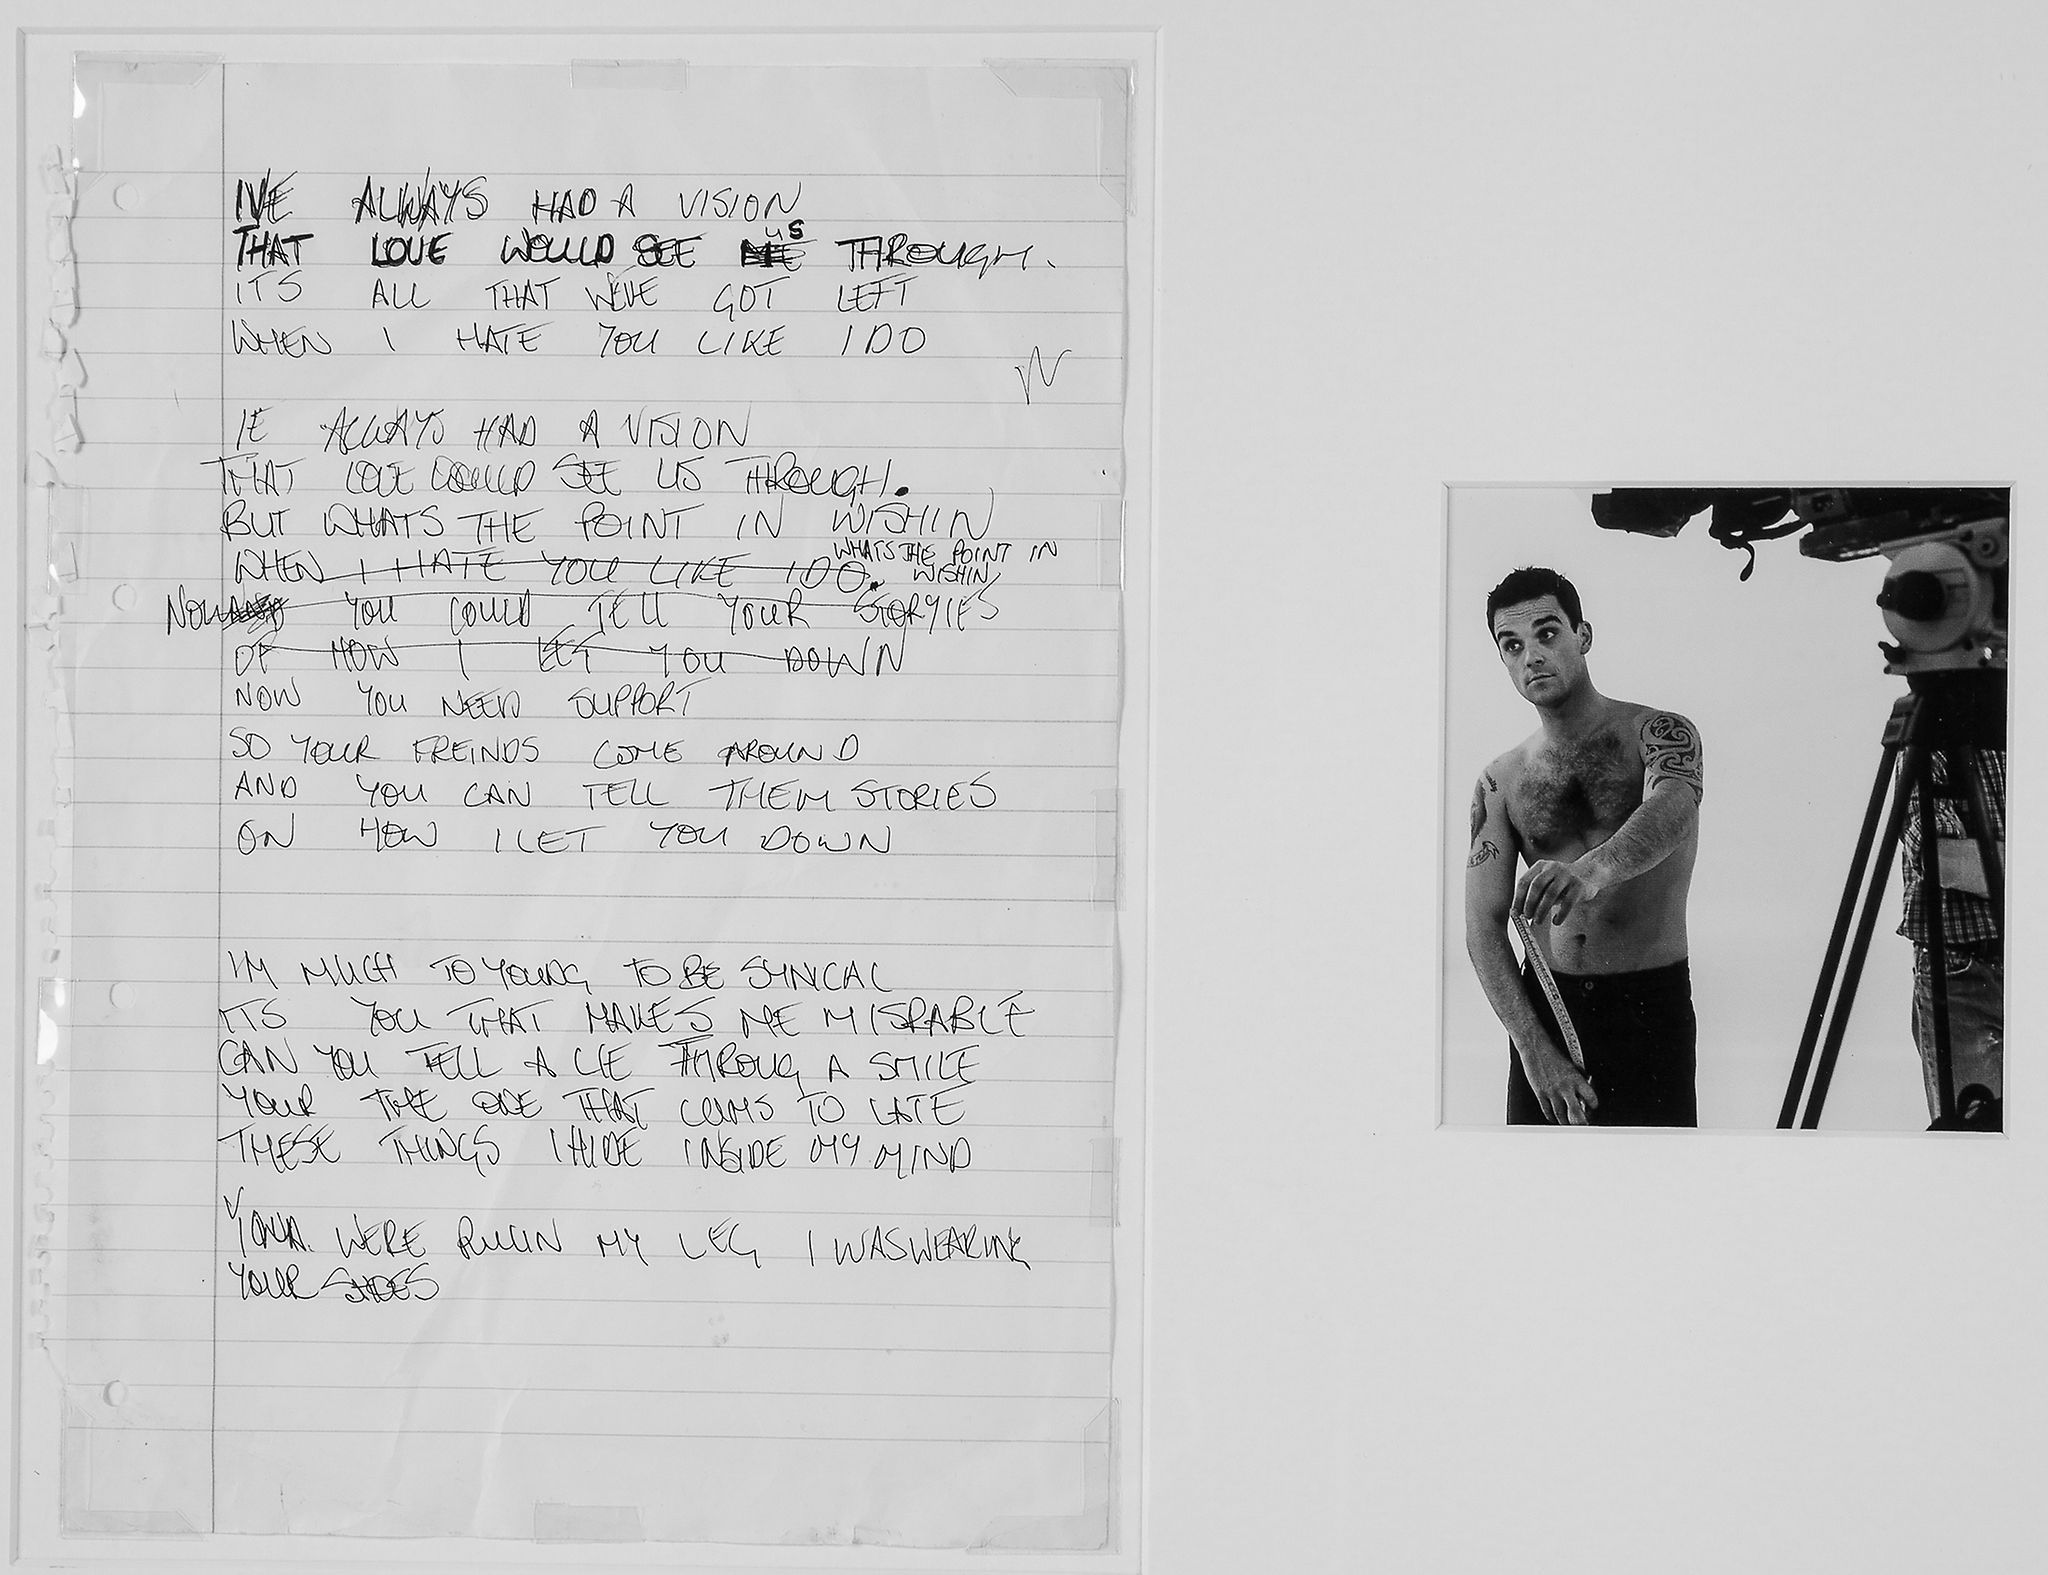 IVE ALWAYS HAD A VISION
THAT LOVE WOULD SEE ME US THROUGH.
ITS ALL THAT WEVE GOT LEFT
WHEN I HATE YOU LIKE I DO
IE ALWAYS HAD A VISION
THAT LOVE WOULD SEE US THROUGH.
BUT WHATS THE POINT IN WISHIN
WHEN I HATE YOU LIKE I DO. WHATS THE POINT IN WISHIN
NOW YOU COULD TELL YOUR STORYIES
OF HOW I LET YOU DOWN
NOW YOU NEED SUPPORT
SO YOUR FREINDS COME AROUND
AND YOU CAN TELL THEM STORIES
ON HOW I LET YOU DOWN
I'M MUCH TO YOUNG TO BE SYNICAL
ITS YOU THAT MAKES ME MISRABLE
CAN YOU TELL A LIE THROUG A SMILE
YOUR THE ONE THAT COMS TO LATE
THESE THINGS I HIDE INSIDE MY MIND
WERE PULLIN MY LEG I WAS WEARING
YOUR SHOES